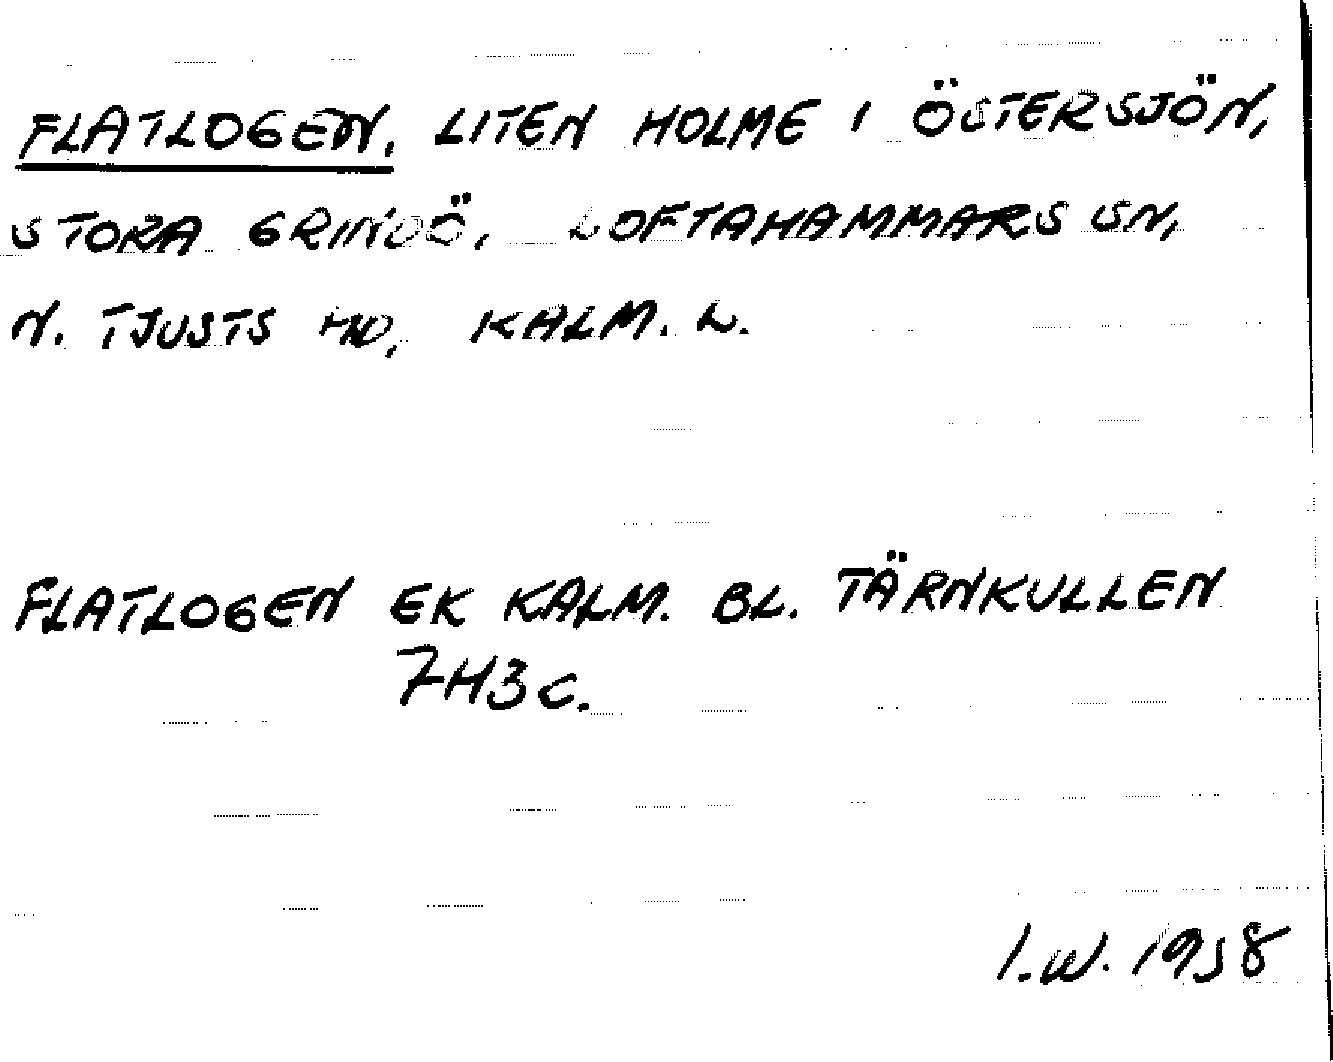 FLATLOGEN. LITEN HOLME I ÖSTERSJÖN,
STORA GRINDÖ, LOFTAHAMMARS SN,
N. TJUSTS HD, KALM. L.
FLATLOGEN EK KALM. BL. TÄRNKULLEN
7H3c.
I.W. 1958